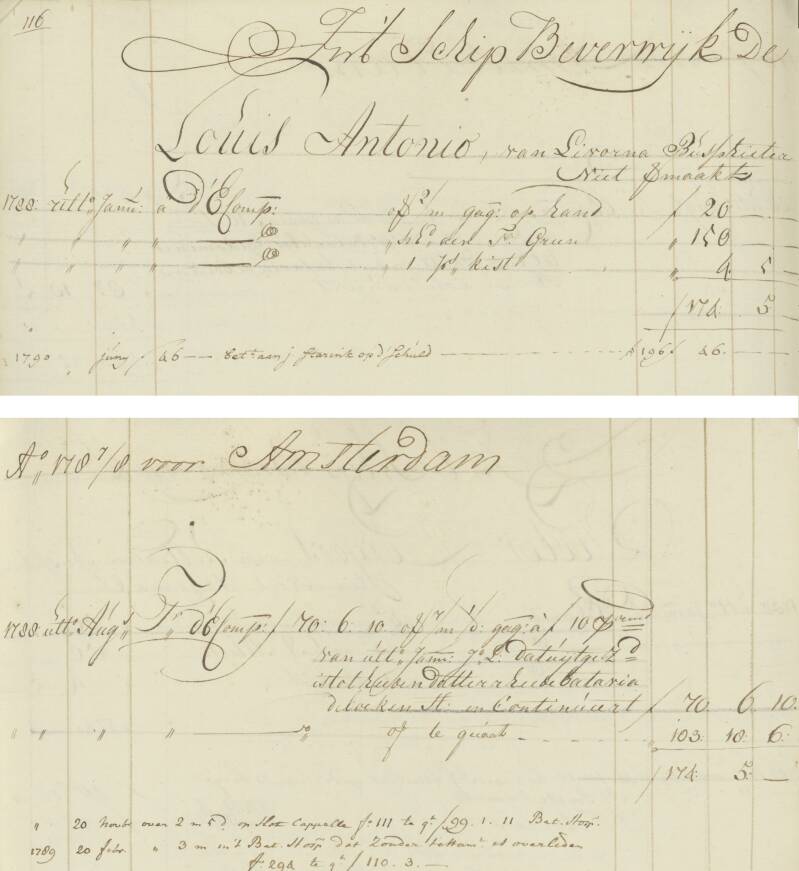 116
Int Schip Beverwijk De
Louis Antonio, van Livorna Bosschieter
Niet Gmaakt
1788: ult:o Jann: a d'E Comp: of 2/m gag: op hand f 20 — —
" " " " " schd: aen F. Grun " 150 — —
" " " " " 1 ps kist " 4 5 —
f 174 5 —
1790 juny f 46 — betn aan j Starink op d schuld f 196 f 46. —
Ao 178 7/8 voor Amsterdam
1788: ulto: Augs Pr d'E Comp: f 70: 6. 10. of 7/m /d: gag: à f 10 p md
van ulto: Jann: Jo. L: dat uytgez:d
is tot heeden dat ter rheede Batavia
de boeken sl: en Continueert f 70. 6. 10.
" " " " do of te quaat — " 103: 18: 6.
f 174. 5. —
" 20 novb over 2 m 5 d. op Slot Cappelle fo 111 te gt f 99. 1. 11 Bat. Hosp.
1789 20 febr " 3 m in't Bat. Hosp dat zonder testamt is overleden
fo 292 te gt f 110. 3. —